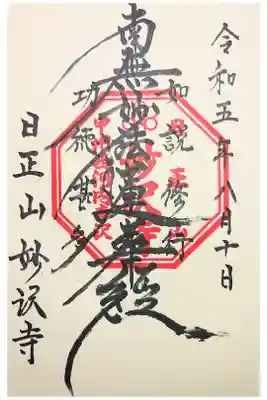 令和五年八月十日
如説修行
南無妙法蓮華経
功徳甚多
日正山 妙 寺